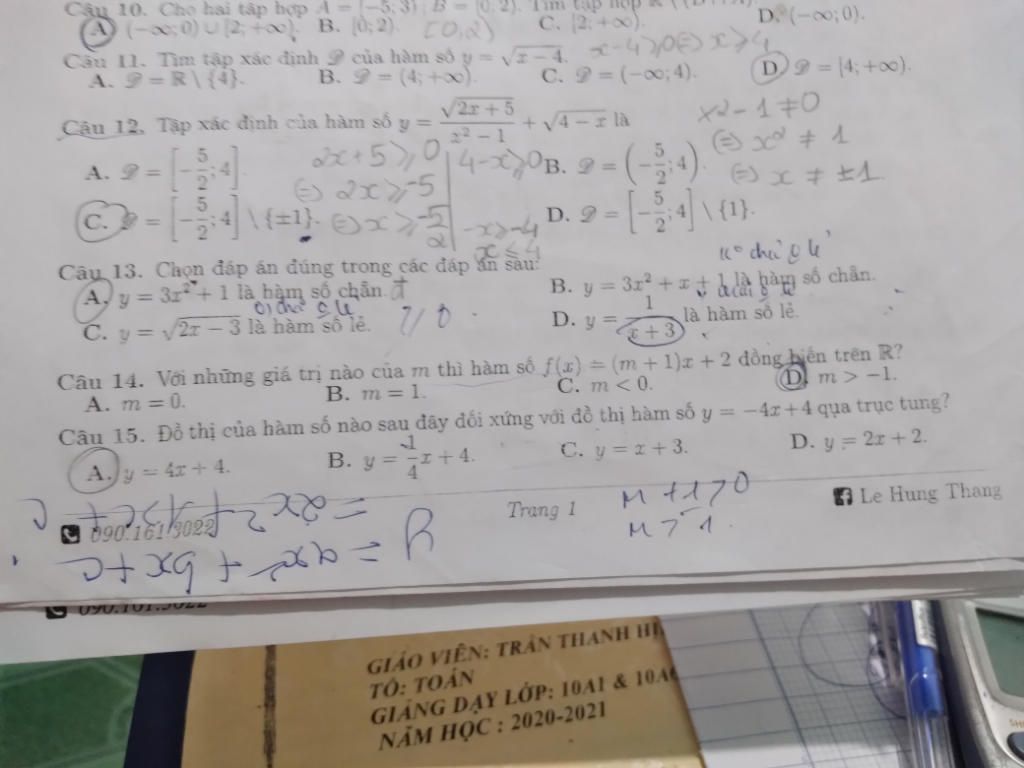 Câu 10. Cho hai tập hợp A = [−5; 3), B = [0; 2). Tìm tập hợp
A. (−∞; 0) ∪ [2; +∞). B. [0; 2). [0,2) C. [2; +∞). D. (−∞; 0).
Câu 11. Tìm tập xác định 𝒟 của hàm số y = √(x − 4). x−4 ⩾ 0 ⇔ x ⩾ 4
A. 𝒟 = ℝ \ {4}. B. 𝒟 = (4; +∞). C. 𝒟 = (−∞; 4). D. 𝒟 = [4; +∞).
Câu 12. Tập xác định của hàm số y = √(2x + 5)/(x² − 1) + √(4 − x) là
x² − 1 ≠ 0
⇔ x² ≠ 1
⇔ x ≠ ±1
A. 𝒟 = [−5/2; 4]. B. 𝒟 = (−5/2; 4).
2x + 5 ⩾ 0
⇔ 2x ⩾ −5
⇔ x ⩾ −5/2
4 − x ⩾ 0
−x ⩾ −4
x ⩽ 4
C. 𝒟 = [−5/2; 4] \ {±1}. D. 𝒟 = [−5/2; 4] \ {1}.
Câu 13. Chọn đáp án đúng trong các đáp án sau:
A. y = 3x² + 1 là hàm số chẵn. B. y = 3x² + x + 1 là hàm số chẵn.
C. y = √(2x − 3) là hàm số lẻ. D. y = 1/(x + 3) là hàm số lẻ.
Câu 14. Với những giá trị nào của m thì hàm số f(x) = (m + 1)x + 2 đồng biến trên ℝ?
A. m = 0. B. m = 1. C. m < 0. D. m > −1.
Câu 15. Đồ thị của hàm số nào sau đây đối xứng với đồ thị hàm số y = −4x + 4 qua trục tung?
A. y = 4x + 4. B. y = −1/4 x + 4. C. y = x + 3. D. y = 2x + 2.
M + 1 > 0
M > −1.
090.161.3022 Trang 1 Le Hung Thang
y = ax² + bx + c
090.161.3022
GIÁO VIÊN: TRẦN THANH
TỔ: TOÁN
GIẢNG DẠY LỚP: 10A1 &
NĂM HỌC : 2020-2021